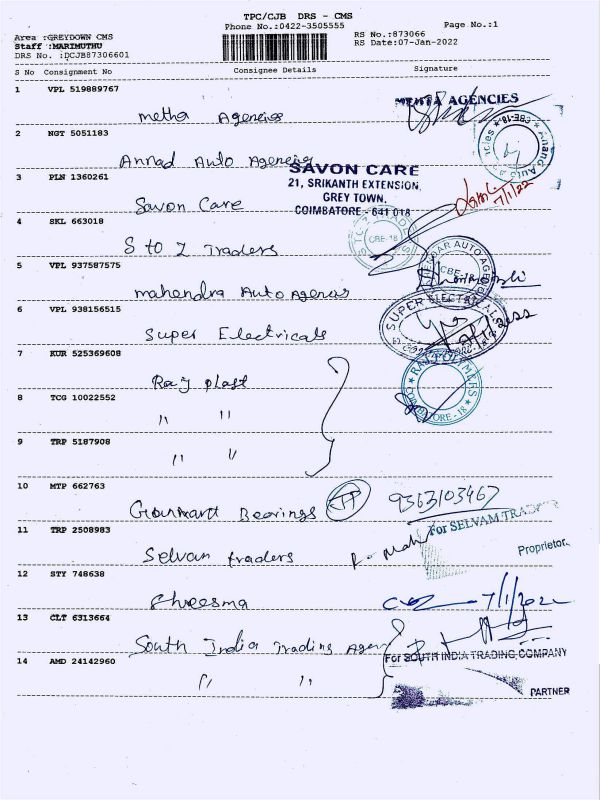 TPC/CJB DRS - CMS
Phone No.:0422-3505555
Page No.:1
Area :GREYDOWN CMS
RS No.:873066
Staff :MARIMUTHU
RS Date:07-Jan-2022
DRS No. :DCJB87306601
S No Consignment No Consignee Details Signature
1 VPL 519889767
MEHTA AGENCIES
metha Agencies
2 NGT 5051183
Annad Auto Agencies
CBE-18
3 PLN 1360261
SAVON CARE
21, SRIKANTH EXTENSION,
GREY TOWN,
COIMBATORE - 641 018
7/1/22
Savon Care
4 SKL 663018
CBE-18
S to Z Traders
5 VPL 937587575
CBE
mahendra Auto Agencies
6 VPL 938156515
SUPER ELECTRICALS
Super Electricals
7 KUR 525369608
Raj plast
RAJ POLYMERS
COIMBATORE - 18
8 TCG 10022552
" "
9 TRP 5187908
" "
10 MTP 662763
Bearings
9363103467
11 TRP 2508983
For SELVAM TRADERS
Proprietor.
Selvan traders
12 STY 748638
Shreesma
7/1/2022
13 CLT 6313664
South India Trading Agen
14 AMD 24142960
For SOUTH INDIA TRADING COMPANY
" "
PARTNER